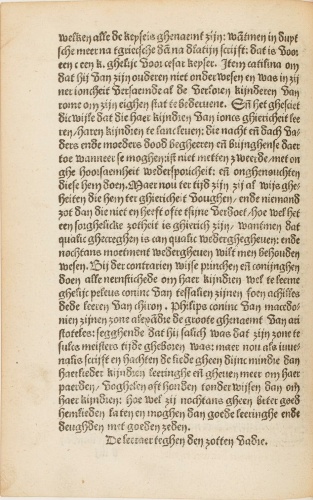 welken alle de keyseis ghenaemt zijn: wātmen in duyt
sche meer na tgriersche dā na dlatijn scrijft: dat is voor
een c een k. ghelijc voor cesar keyser. Item catilina om
dat hij van zijn ouderen niet onderwesen en was in zij
ner ioncheit versaemde al de verloren kijnderen van
rome om zijn eighen stat te bederuene. En̄ het ghesciet
dicwijle dat die haer kijndren van ioncs ghiericheit lee
ren/haren kijndren te lanc leuen: die nacht en̄ dach va-
ders ende moeders dood begheeren en̄ bijnghense daer
toe wanneer se moghen: ist niet metten zweerde/met on
ghe hoorsaemheit wederspoticheit: en̄ onghenouchten
diese hem doen. Maer nou ter tijd zijn zij al wijs ghe-
heiten die hem ter ghiericheit voughen/ende niemand
zot dan die niet en heeft oft e tsijne verdoet/hoe wel het
een sorghelicke zotheit is ghierich zijn/wantmen dat
qualic ghecreghen is can qualic wederghegheuen: ende
nochtans moetment wedergheuen wilt men behouden
wesen. Bij der contrarien wijse princhen en̄ conijnghen
doen alle neernstichede om haer kijndren wel te leerne
ghelijc peleus coninc van tessalien zijnen soen achilles
dede leeren van chiron. Philips coninc van macedo-
nien zijnen zone alexādre de groote ghenaemt van ari
stoteles: segghende dat hij salich was dat zijn zone te
sulcs meisters tijde gheboren was: maer nou als iuue-
nalis scrijft en̄ hachten de liede gheen dijnc mindre dan
haerlieder kijndren leeringhe en̄ gheuen meer om haer
paerden/voghelen oft honden tonderwijsen dan om
haer kijndren: hoe wel zij nochtans gheen beter goed
hemlieden laten en moghen dan goede leeringhe ende
deughden met goeden zeden.
De leeraer teghen den zotten vadre.